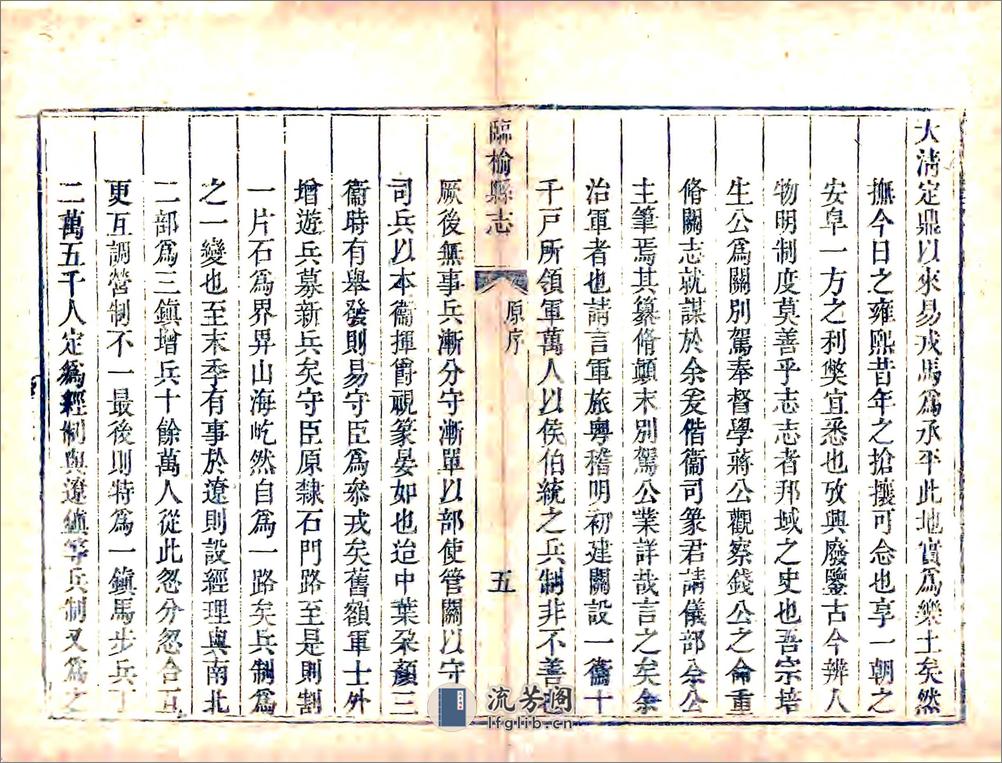 大淸定鼎以來易戎馬爲承平此地實爲樂土矣然
撫今日之雍熙昔年之搶攘可念也享一朝之
安阜一方之利獘宜悉也攷興廢鑒古今辨人
物明制度莫善乎志志者邦域之史也吾宗培
生公爲關別駕奉督學蔣公觀察錢公之命重
脩關志就謀於余爰偕衞司篆君請儀部佘公
主筆焉其纂脩顚末別駕公業詳哉言之矣余
治軍者也請言軍旅粤稽明初建關設一衞十
千戸所領軍萬人以侯伯統之兵制非不善也
臨榆縣志
原序
五
厥後無事兵漸分守漸單以部使管關以守
司兵以本衞揮爵視篆晏如也迨中葉朶顏三
衞時有舉發則易守臣爲叅戎矣舊額軍士外
增遊兵募新兵矣守臣原隸石門路至是則割
一片石爲界畀山海屹然自爲一路矣兵制爲
之一變也至末季有事於遼則設經理與南北
二部爲三鎭增兵十餘萬人從此忽分忽合互
更互調營制不一最後則特爲一鎭馬步兵丁
二萬五千人定爲經制與遼鎭等兵制又爲之
流芳阁
lfglib.cn